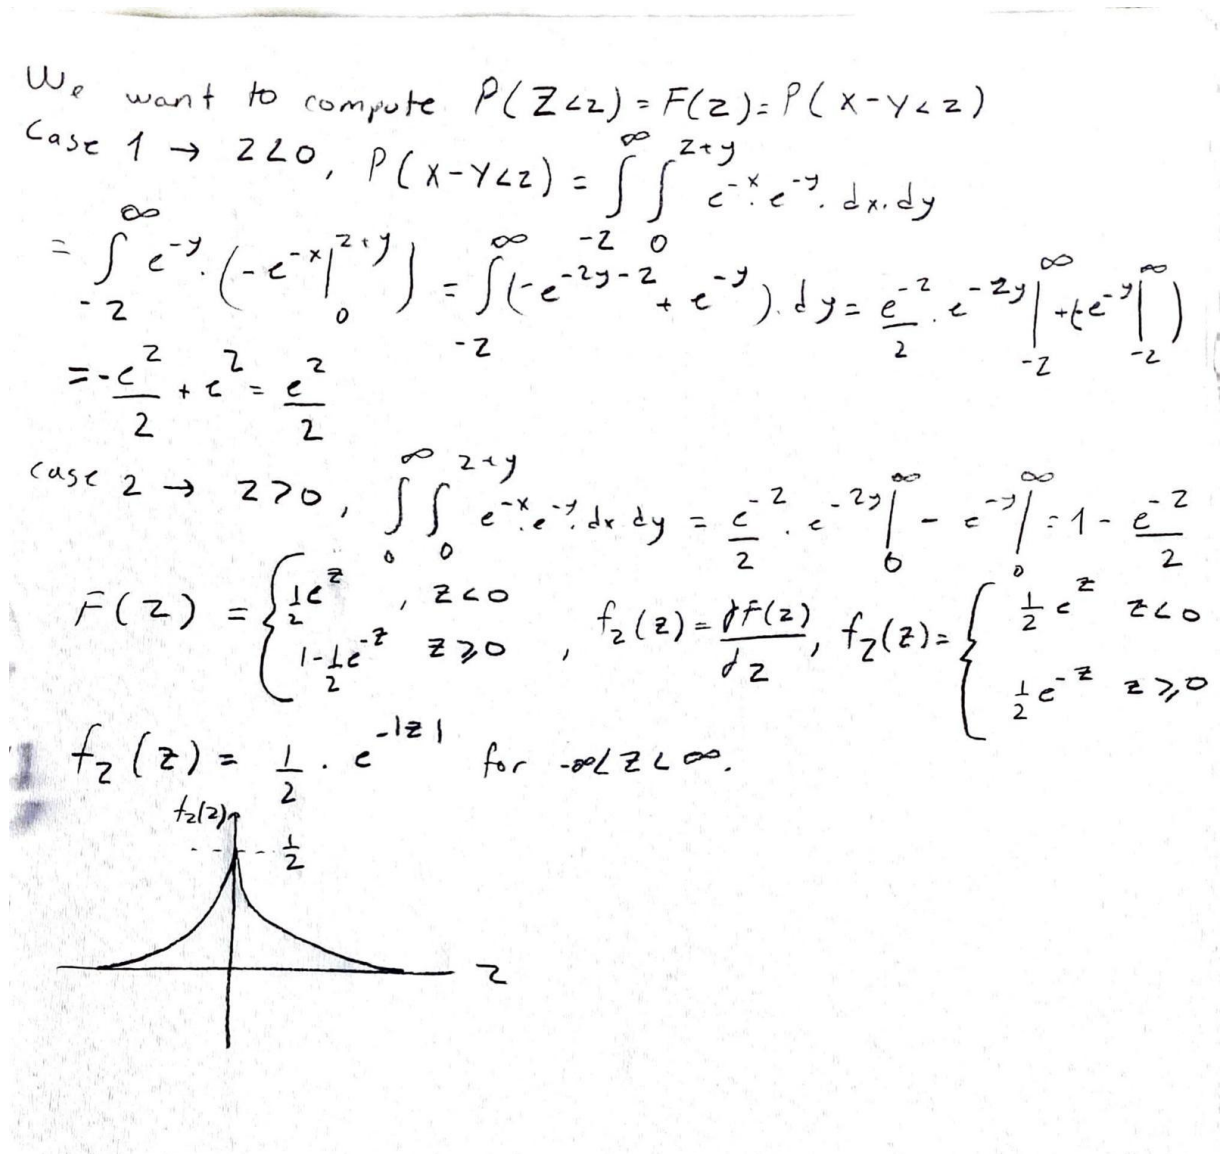 We want to compute P(Z<z) = F(z) = P(X-Y<z)
Case 1 → z<0, P(X-Y<z) = ∫_{-z}^{∞} ∫_{0}^{z+y} e^{-x}.e^{-y}. dx.dy
= ∫_{-z}^{∞} e^{-y}.(-e^{-x}|_{0}^{z+y}) = ∫_{-z}^{∞} (-e^{-2y-z} + e^{-y}).dy = e^{-z}/2 . e^{-2y}|_{-z}^{∞} + (-e^{-y}|_{-z}^{∞})
= -e^{z}/2 + e^{z} = e^{z}/2
case 2 → z>0, ∫_{0}^{∞} ∫_{0}^{z+y} e^{-x}.e^{-y}. dx dy = e^{-z}/2 . e^{-2y}|_{0}^{∞} - e^{-y}|_{0}^{∞} = 1 - e^{-z}/2
F(z) = { 1/2 e^{z}, z<0 ; 1-1/2 e^{-z} z⩾0 , f_z(z) = dF(z)/dz, f_z(z) = { 1/2 e^{z} z<0 ; 1/2 e^{-z} z⩾0
f_z(z) = 1/2 . e^{-|z|} for -∞<z<∞.
f_z(z)
1/2
z